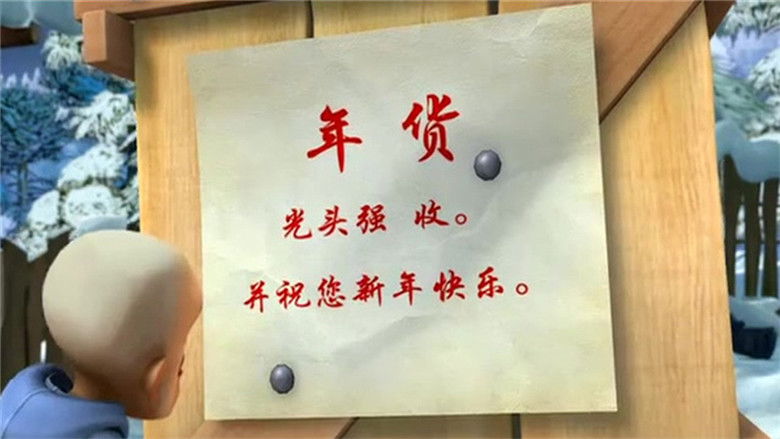 年货
光头强 收。
并祝您新年快乐。